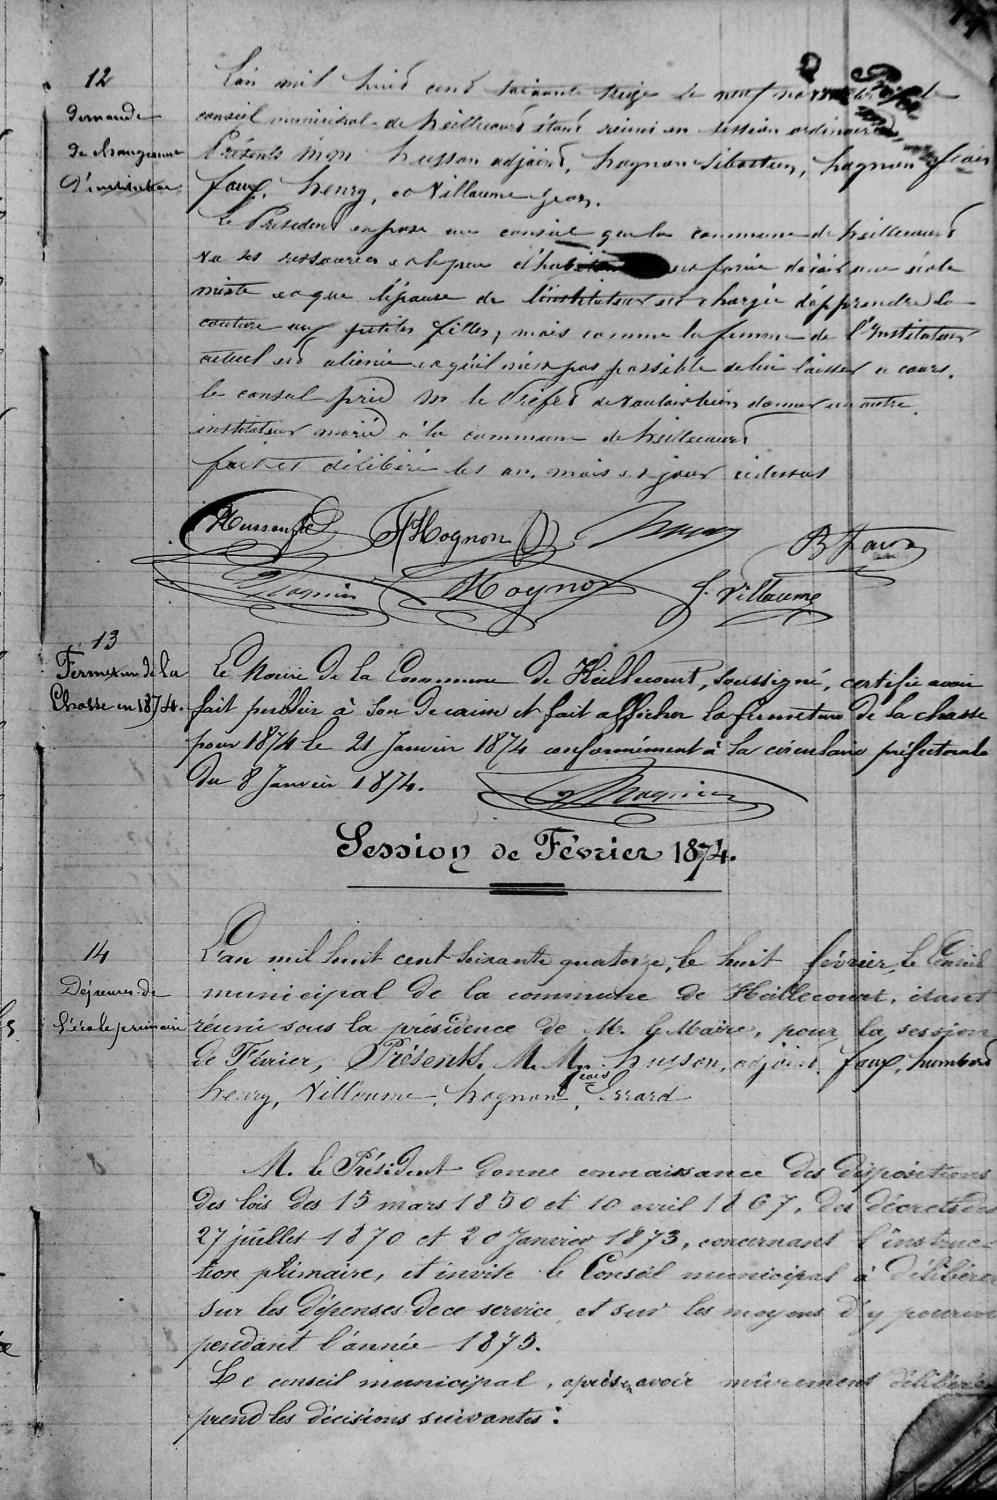 12
demande
de changement
d'instituteur
L'an mil huit cent soixante treize le neuf novembre le
conseil municipal de heillecourt étant réuni en session ordinaire
Présents Mrs husson adjoint, hognon Sébastien, hognon fcois
faux, henry, et Villaume Jean.
Le Président expose au conseil que la commune de heillecourt
vu ses ressources et le peu d'habitants est forcée d'avoir une école
mixte et que l'épouse de l'instituteur est chargée d'apprendre la
couture aux petites filles, mais comme la femme de l'Instituteur
actuel est aliénée et qu'il n'est pas possible de lui laisser ce cours.
le conseil prie Mr le Préfet de vouloir bien donner un autre
instituteur marié à la commune de heillecourt
fait et délibéré les an, mois et jour cidessus
Husson
Hognon
henry
B Faux
Magnien
Hognon
J. Villaume
13
Fermeture de la
Chasse en 1874.
Le Maire de la Commune de Heillecourt, soussigné, certifie avoir
fait publier à son de caisse et fait afficher la fermeture de la chasse
pour 1874 le 21 Janvier 1874 conformément à la circulaire préfectorale
du 8 Janvier 1874.
Magnien
Session de Février 1874.
14
Dépenses de
l'école primaire
L'an mil huit cent soixante quatorze, le huit février, le Conseil
municipal de la commune de Heillecourt, étant
réuni sous la présidence de M. le Maire, pour la session
de Février, Présents. M.M. husson, adjoint, faux, humbert
henry, Villaume, hognon fcois, Errard
M. le Président donne connaissance des dispositions
des lois des 15 mars 1850 et 10 avril 1867, des décrets des
27 juillet 1870 et 20 Janvier 1873, concernant l'instruc-
tion primaire, et invite le Conseil municipal à délibérer
sur les dépenses de ce service, et sur les moyens d'y pourvoir
pendant l'année 1875.
Le conseil municipal, après en avoir mûrement délibéré
prend les décisions suivantes: